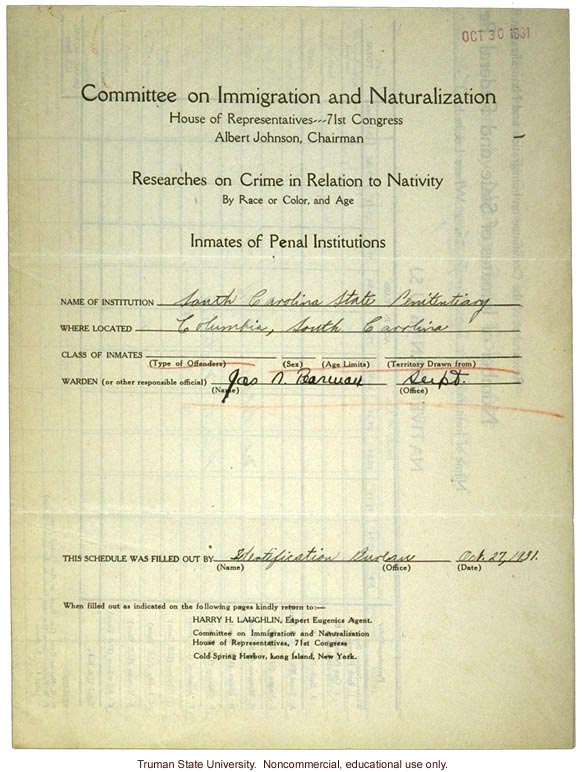 OCT 30 1931
Committee on Immigration and Naturalization
House of Representatives---71st Congress
Albert Johnson, Chairman
Researches on Crime in Relation to Nativity
By Race or Color, and Age
Inmates of Penal Institutions
NAME OF INSTITUTION South Carolina State Penitentiary
WHERE LOCATED Columbia, South Carolina
CLASS OF INMATES
(Type of Offenders) (Sex) (Age Limits) (Territory Drawn from)
WARDEN (or other responsible official) Jas N. Pearman Supt.
(Name) (Office)
THIS SCHEDULE WAS FILLED OUT BY Identification Bureau Oct. 27, 1931.
(Name) (Office) (Date)
When filled out as indicated on the following pages kindly return to:—
HARRY H. LAUGHLIN, Expert Eugenics Agent.
Committee on Immigration and Naturalization
House of Representatives, 71st Congress
Cold Spring Harbor, Long Island, New York.
Truman State University. Noncommercial, educational use only.